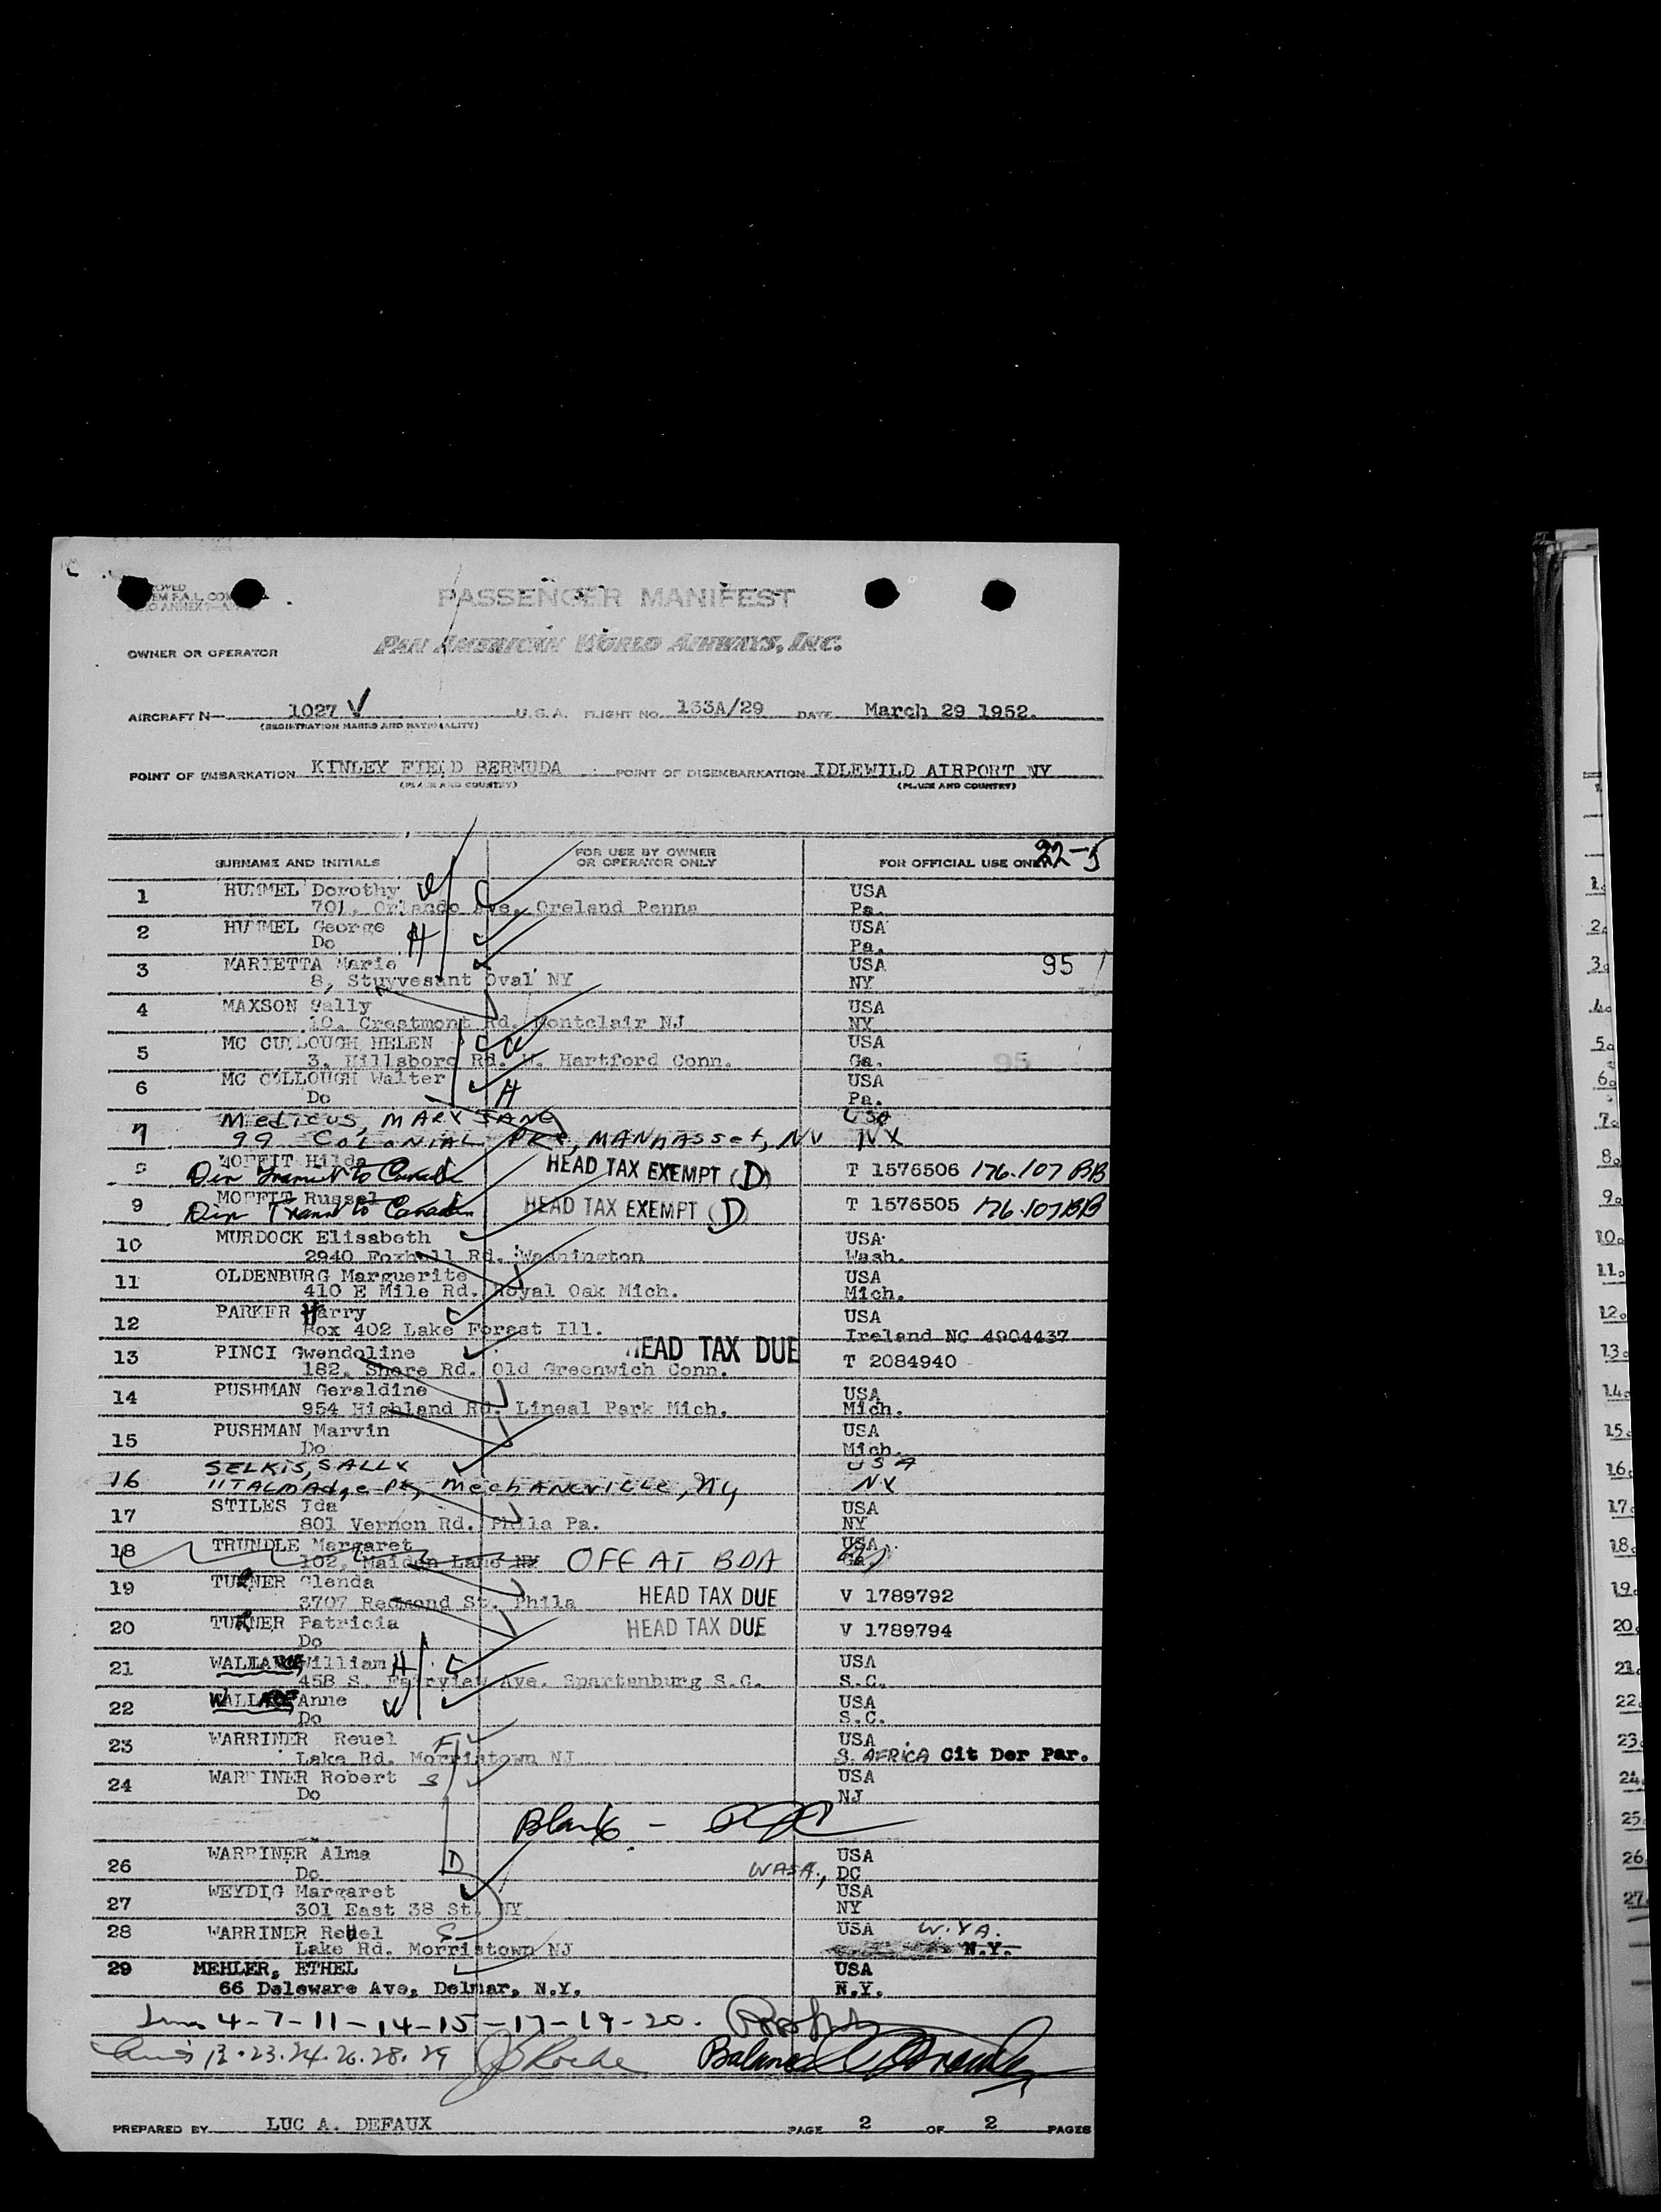 PASSENGER MANIFEST
OWNER OR OPERATOR PAN AMERICAN WORLD AIRWAYS, INC.
AIRCRAFT N— 1027 V U.S.A. FLIGHT NO. 133A/29 DATE March 29 1952.
(REGISTRATION MARKS AND NATIONALITY)
POINT OF EMBARKATION KINLEY FIELD BERMUDA POINT OF DISEMBARKATION IDLEWILD AIRPORT NY
(PLACE AND COUNTRY) (PLACE AND COUNTRY)
SURNAME AND INITIALS FOR USE BY OWNER OR OPERATOR ONLY FOR OFFICIAL USE ONLY 22-5
1 HUMMEL Dorothy W USA
701, Orlando Ave. Oreland Penna Pa.
2 HUMMEL George H USA
Do Pa.
3 MARIETTA Marie USA 95
8, Stuyvesant Oval NY NY
4 MAXSON Sally USA
10, Crestmont Rd. Montclair NJ NY
5 MC CULLOUGH HELEN W USA
3, Hillsboro Rd. W. Hartford Conn. Ga. 95
6 MC COLLOUGH Walter H USA
Do Pa.
7 Medicus, MARY JANE USA
99 COLONIAL PKY, MANHASSet, NY NY
MOFFIT Hilda HEAD TAX EXEMPT (D) T 1576506 176.107 BB
Dir Transit to Canada
9 MOFFIT Russel HEAD TAX EXEMPT (D) T 1576505 176.107 BB
Dir Trans to Canada
10 MURDOCK Elisabeth USA
2940 Foxhall Rd. Washington Wash.
11 OLDENBURG Marguerite USA
410 E Mile Rd. Royal Oak Mich. Mich.
12 PARKER Harry USA
Box 402 Lake Forest Ill. Ireland NC 4904437
13 PINCI Gwendoline HEAD TAX DUE T 2084940
182, Shore Rd. Old Greenwich Conn.
14 PUSHMAN Geraldine USA
954 Highland Rd. Lineal Park Mich. Mich.
15 PUSHMAN Marvin USA
Do Mich.
16 SELKIS, SALLY USA
11 TALMAdge Pl, MechANCVILLE, NY NY
17 STILES Ida USA
801 Vernon Rd. Phila Pa. NY
18 TRUNDLE Margaret USA
102, Maiden Lane NY OFF AT BDA Ga.
19 TURNER Glenda HEAD TAX DUE V 1789792
3707 Redmond St. Phila
20 TURNER Patricia HEAD TAX DUE V 1789794
Do
21 WALLACE William H USA
458 S. Fairview Ave. Spartenburg S.C. S.C.
22 WALLACE Anne W USA
Do S.C.
23 WARRINER Reuel F USA
Lake Rd. Morristown NJ S. AFRICA Cit Der Par.
24 WARRINER Robert S USA
Do NJ
Blank -
26 WARRINER Alma D USA
Do WASH., DC
27 WEYDIG Margaret USA
301 East 38 St. NY NY
28 WARRINER Reuel S USA W.VA.
Lake Rd. Morristown NJ N.Y.
29 MEHLER, ETHEL USA
66 Deleware Ave, Delmar, N.Y. N.Y.
4-7-11-14-15-17-19-20.
13.23.24.26.28.29 Roche Balance
PREPARED BY LUC A. DEFAUX PAGE 2 OF 2 PAGES